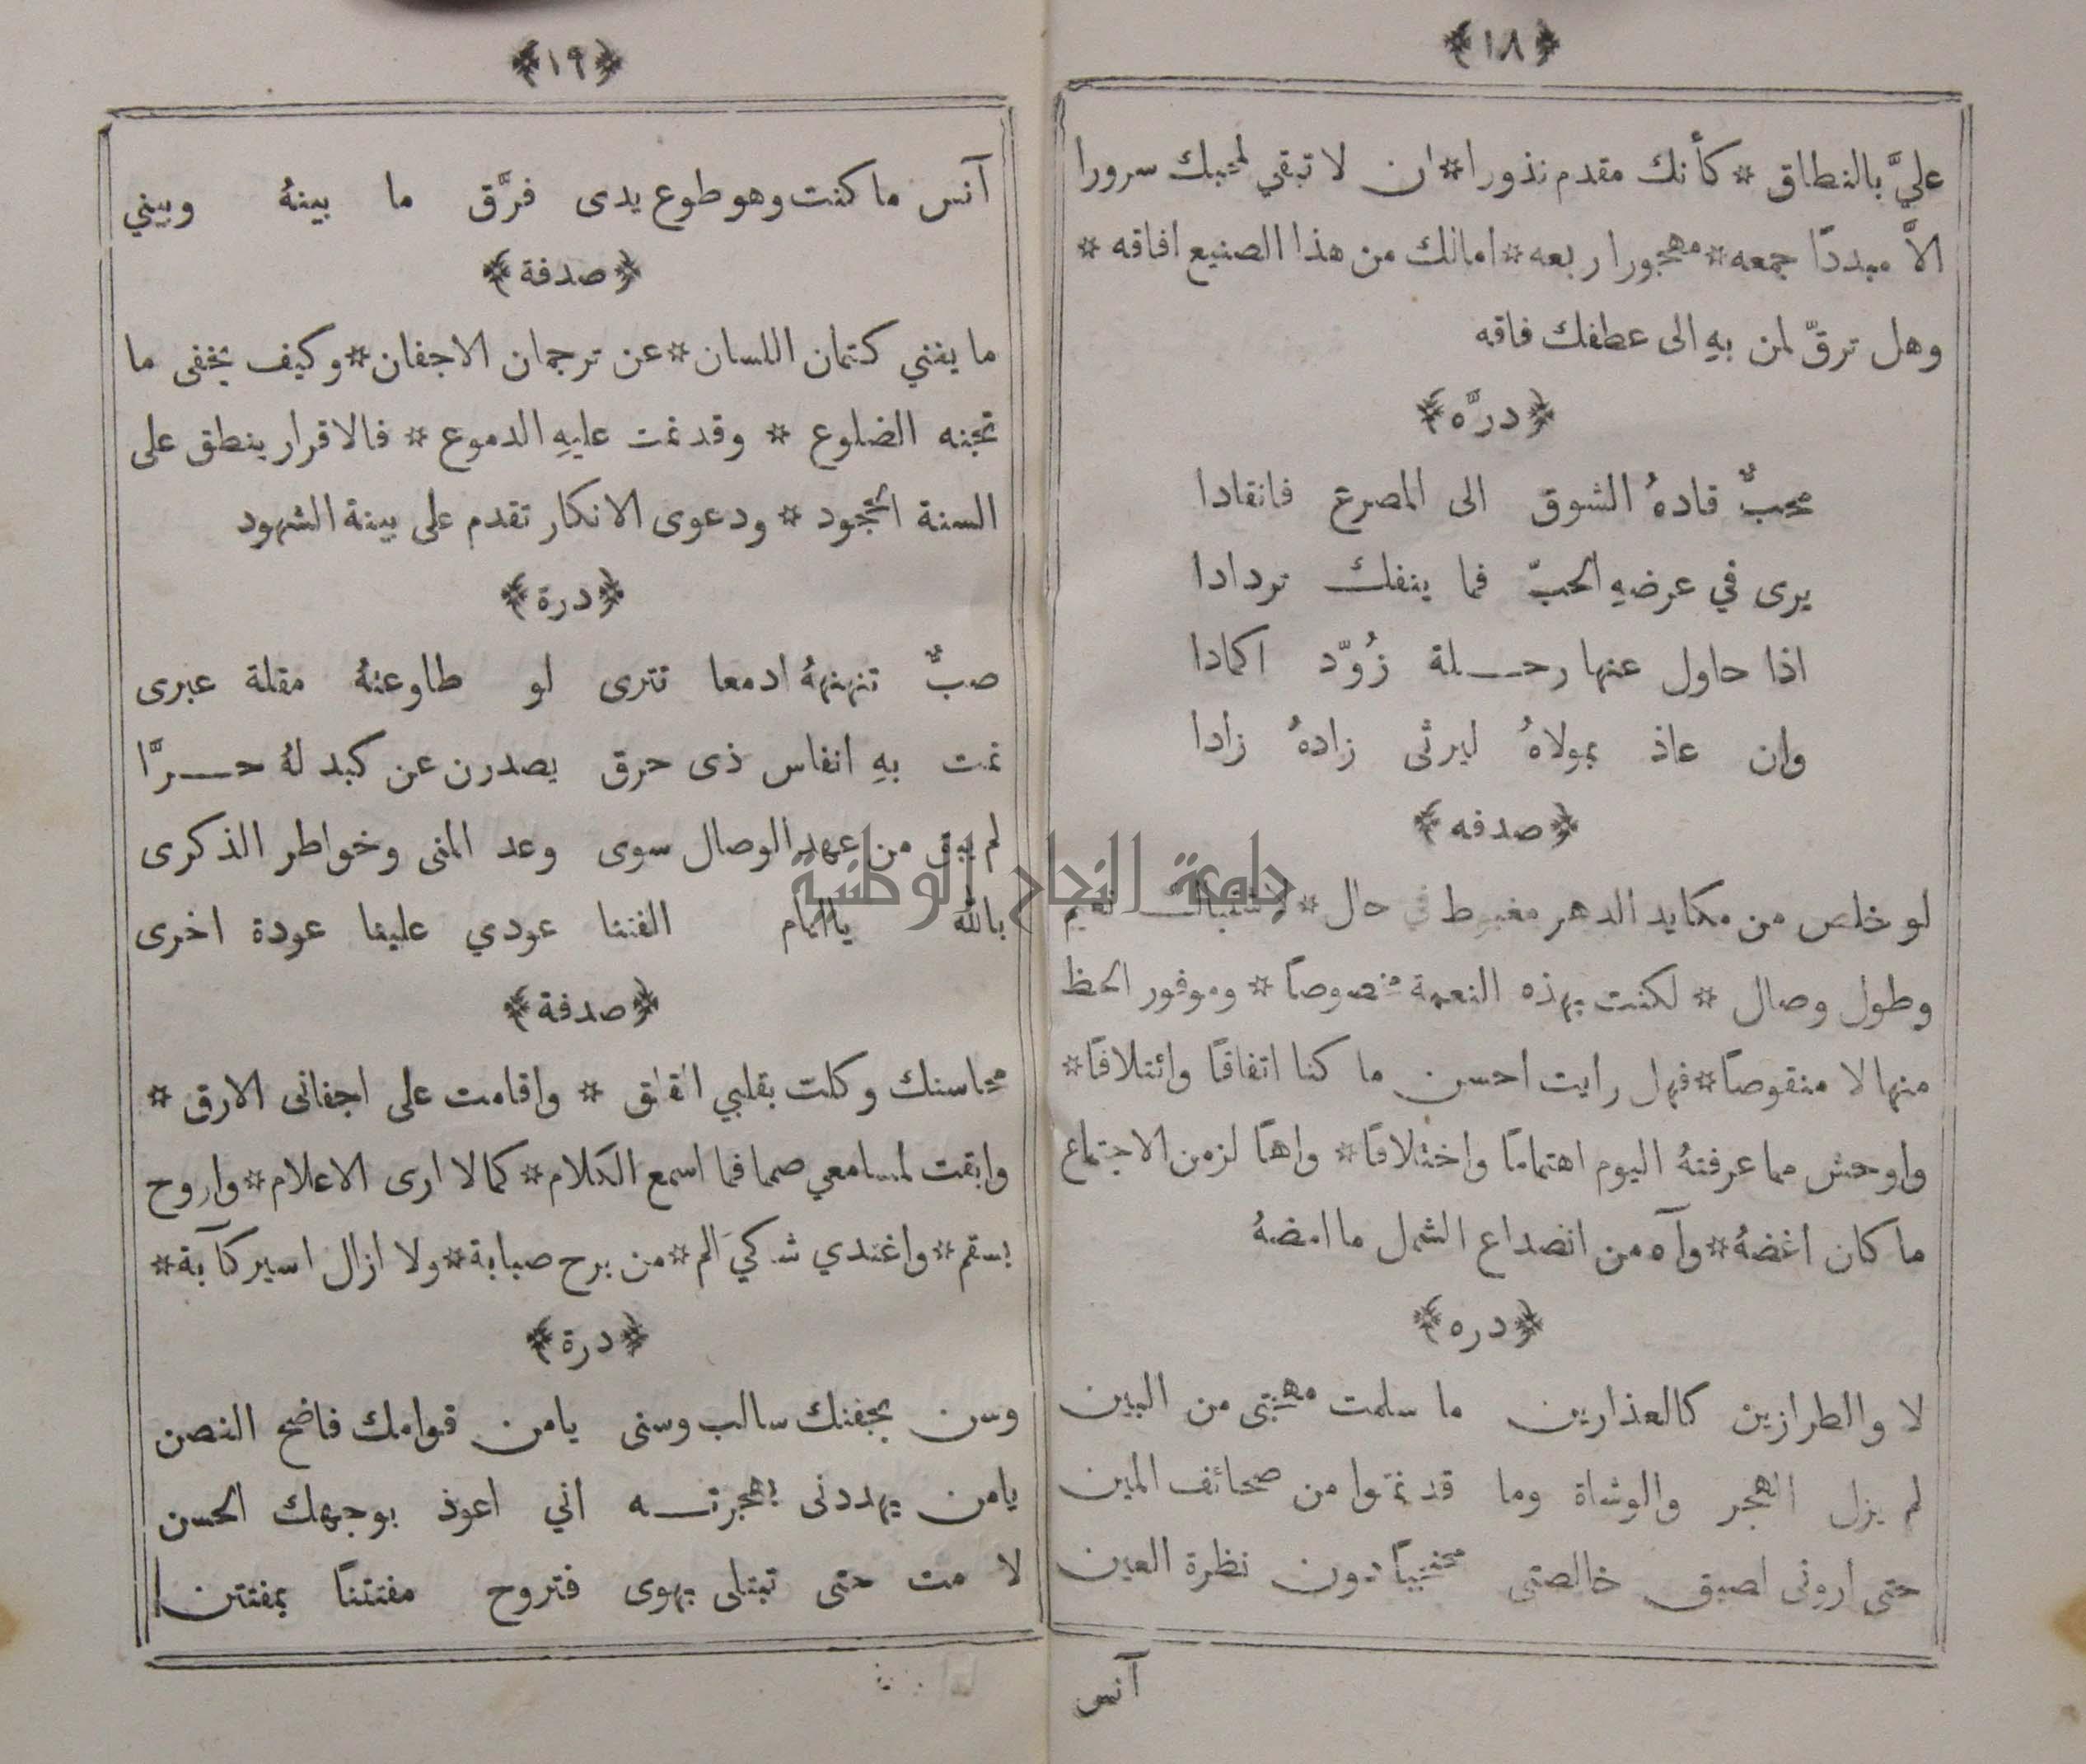 ﴿١٨﴾
عليَّ بالنطاق * كأنك مقدم نذورا * ان لا تبقي لمحبك سرورا
الاَّ مبددًا جمعه * مهجورا ربعه * امالك من هذا الصنيع افاقه *
وهل ترقّ لمن بهِ الى عطفك فاقه
﴿درَّه﴾
محبٌّ قادهُ الشوق الى المصرع فانقادا
يرى في عرضهِ الحبّ فما ينفك تردادا
اذا حاول عنها رحـــلة زُوّد اكمادا
وان عاذ بمولاهُ ليرثى زادهُ زادا
﴿صدفه﴾
لو خلص من مكايد الدهر مغبوط في حال * لاشتبالك نعيم
وطول وصال * لكنت بهذه النعمة مخصوصًا * وموفور الحظ
منها لا منقوصًا * فهل رايت احسن ما كنا اتفاقًا وائتلافًا *
واوحش مما عرفتهُ اليوم اهتمامًا واختلافًا * واهًا لزمن الاجتماع
ما كان اغضهُ * وآه من انصداع الشمل ما امضهُ
﴿دره﴾
لا والطرازين كالعذارين ما سلمت مهجتى من البين
لم يزل الهجر والوشاة وما قد نمّوا من صحائف المين
حتى أرونى لصيق خالصتى محتجبًا دون نظرة العين
آنس
﴿١٩﴾
آنس ما كنت وهو طوع يدى فرَّق ما بينهُ وبيني
﴿صدفة﴾
ما يغني كتمان اللسان * عن ترجمان الاجفان * وكيف يخفى ما
تجنه الضلوع * وقد نمت عليهِ الدموع * فالاقرار ينطق على
السنة الجحود * ودعوى الانكار تقدم على بينة الشهود
﴿درة﴾
صبٌّ تنهنهُ ادمعا تترى لو طاوعنهُ مقلة عبرى
نمت بهِ انفاس ذى حرق يصدرن عن كبد لهُ حـــرَّا
لم يبق من عهد الوصال سوى وعد المنى وخواطر الذكرى
بالله يا ايام الفتنا عودي علينا عودة اخرى
﴿صدفة﴾
محاسنك وكلت بقلبي القلق * واقامت على اجفانى الارق *
وابقت لمسامعي صمما فما اسمع الكلام * كما لا ارى الاعلام * واروح
بسقم * واغتدي شاكيَ الم * من برح صبابة * ولا ازال اسير كآبة *
﴿درة﴾
وسن بجفنك سالب وسنى يا من قوامك فاضح الغصن
يا من يهددنى بهجرتـــه اني اعوذ بوجهك الحسن
لا مت حتى تبتلى بهوى فتروح مفتتنًا بمفتتن
جامعة النجاح الوطنية